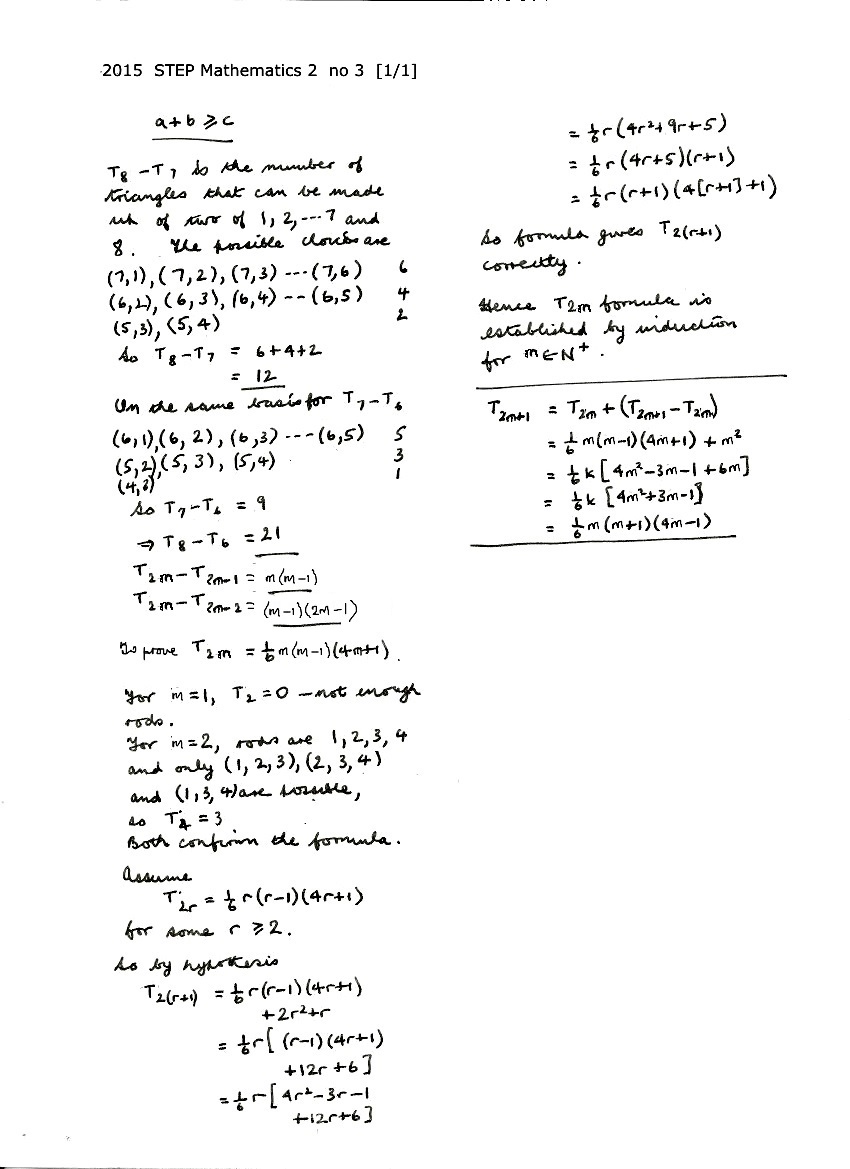 2015 STEP Mathematics 2 no 3 [1/1]
a+b ⩾ c
T₈ − T₇ is the number of
triangles that can be made
of two of 1, 2, --- 7 and
8. The possible are
(7,1), (7,2), (7,3) --- (7,6) 6
(6,2), (6,3), (6,4) -- (6,5) 4
(5,3), (5,4) 2
So T₈ − T₇ = 6+4+2
= 12
On the same basis for T₇ − T₆
(6,1), (6,2), (6,3) --- (6,5) 5
(5,2), (5,3), (5,4) 3
(4,3) 1
So T₇ − T₆ = 9
⇒ T₈ − T₆ = 21
T₂ₘ − T₂ₘ₋₁ = m(m−1)
T₂ₘ − T₂ₘ₋₂ = (m−1)(2m−1)
To prove T₂ₘ = ⅙ m(m−1)(4m+1).
For m=1, T₂ = 0 − not enough
rods.
For m=2, rods are 1, 2, 3, 4
and only (1,2,3), (2,3,4)
and (1,3,4) are possible,
so T₄ = 3
Both confirm the formula.
Assume
T₂ᵣ = ⅙ r(r−1)(4r+1)
for some r ⩾ 2.
So by hypothesis
T₂₍ᵣ₊₁₎ = ⅙ r(r−1)(4r+1)
+2r²+r
= ⅙ r[ (r−1)(4r+1)
+12r+6]
= ⅙ r[ 4r²−3r−1
+12r+6]
= ⅙ r(4r²+9r+5)
= ⅙ r(4r+5)(r+1)
= ⅙ r(r+1)(4[r+1]+1)
So formula gives T₂₍ᵣ₊₁₎
correctly.
Hence T₂ₘ formula is
established by induction
for m∈N⁺.
T₂ₘ₊₁ = T₂ₘ + (T₂ₘ₊₁ − T₂ₘ)
= ⅙ m(m−1)(4m+1) + m²
= ⅙ k[4m²−3m−1+6m]
= ⅙ k[4m²+3m−1]
= ⅙ m(m+1)(4m−1)